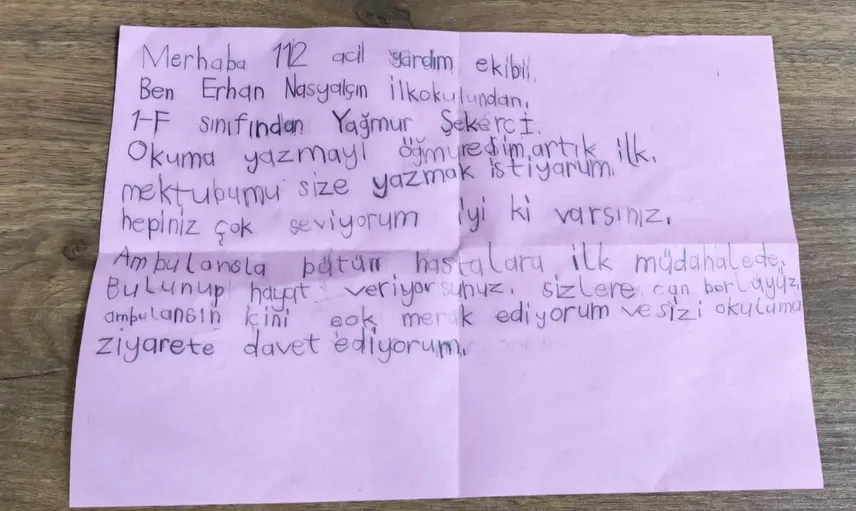 Merhaba 112 acil yardım ekibi!
Ben Erhan Nasyalçın İlkokulundan,
1-F sınıfından Yağmur Şekerci.
Okuma yazmayı öğmyredim, artık ilk.
mektubumu size yazmak istiyarum.
hepiniz çok seviyorum iyi ki varsınız.
Ambulansla bütün hastalara ilk müdahalede.
Bulunup hayat veriyorsunuz. sizlere can borluyuz,
ambulansın içini çok merak ediyorum ve sizi okuluma
ziyarete davet ediyorum.